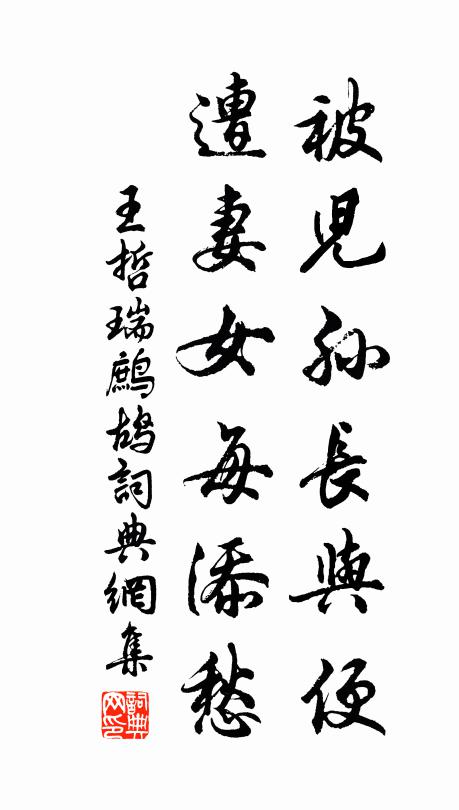 被兒孫長與便
遭妻女每添愁
王哲瑞鷓鴣詞典網集
詞典網印